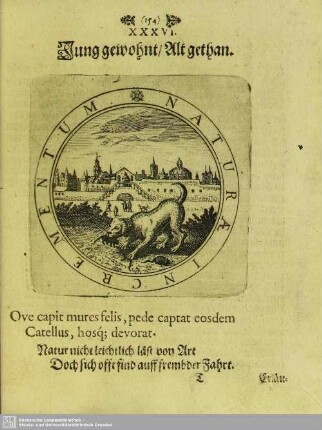 (154)
XXXVI.
Jung gewohnt/ Alt gethan.
NATURÆ INCREMENTUM.
Ove capit mures felis, pede captat eosdem
Catellus, hosq́; devorat.
Natur nicht leichtlich läst von Art
Doch sich offt find auff frembder Fahrt.
T
Erläu-